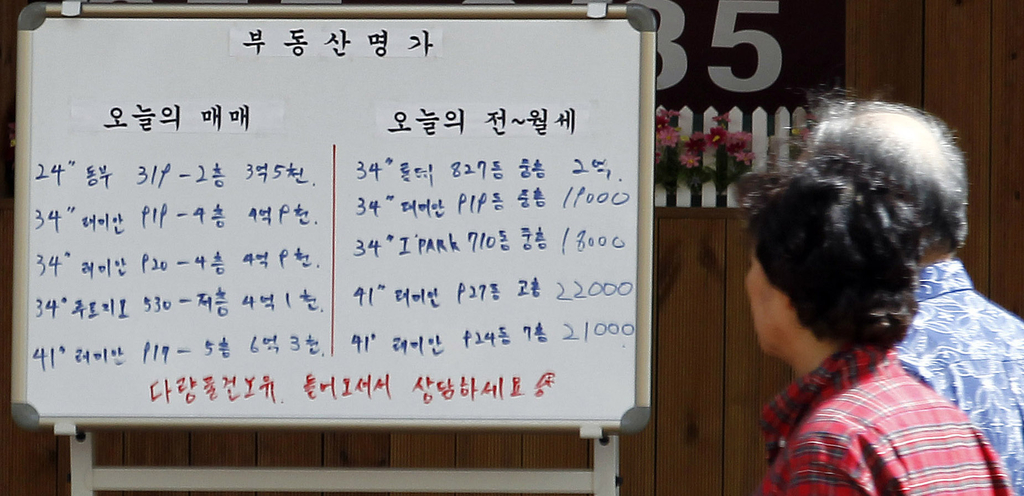 35
부동산명가
오늘의 매매
24" 동부 319 - 2층 3억5천.
34" 래미안 919 - 4층 4억9천.
34" 래미안 920 - 4층 4억9천.
34" 푸르지오 530 - 저층 4억1천.
41" 래미안 917 - 5층 6억3천.
오늘의 전~월세
34" 롯데 827동 중층 2억.
34" 래미안 919동 중층 19000
34" I'PARK 710동 중층 18000
41" 래미안 927동 고층 22000
41" 래미안 924동 7층 21000
다량물건보유. 들어오셔서 상담하세요